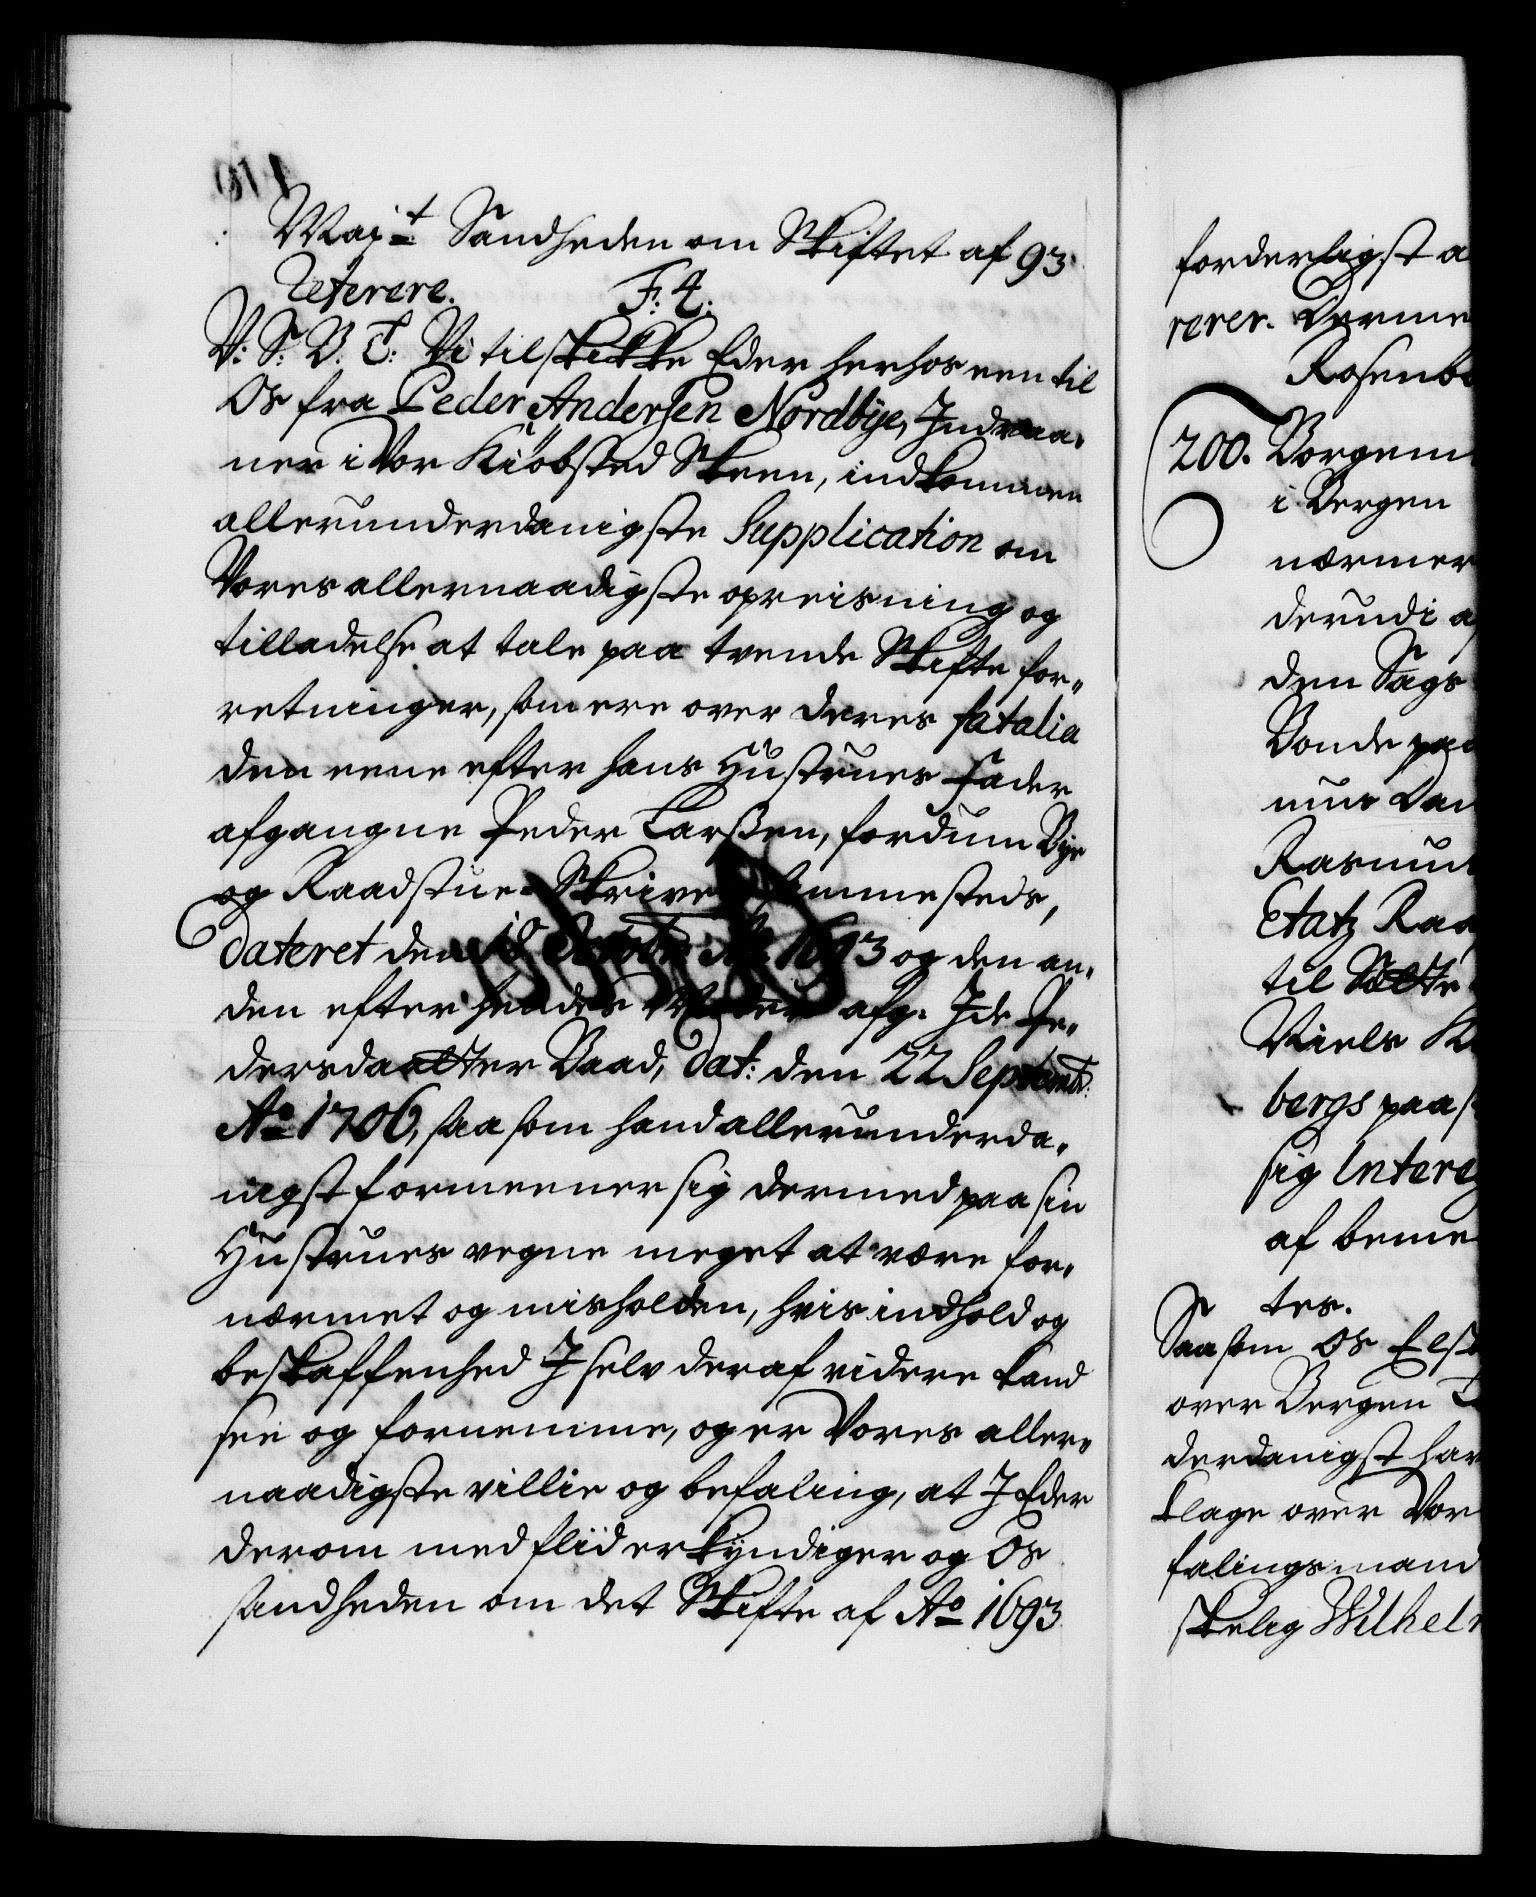 Maj:t Sandheden om Skiftet af 93
referere. F. 4.
V: S: B: T: Vi tilskikke Eder herhos een til
Os fra Peder Andersen Nordbye, Indvaa-
ner i Vor Kiöbsted Skeen, indkommen
allerunderdanigste Supplication om
Vores allernaadigste opreisning og
tilladelse at tale paa tvende Skifte for-
retninger, som ere over deres fatalia
den eene efter hans Hustrues Fader
afgangne Peder Larsen, fordum Bye
og Raadstue-Skriver sammesteds,
dateret den 18 Octobr: Ao 1693 og den an-
den efter hendes Moder afg. Ide Pe-
dersdaatter Baad, dat: den 22 Septembr:
Ao 1706, saasom hand allerunderda-
nigst formeener sig dermed paa sin
Hustrues vegne meget at være for-
nærmet og misholden, hvis indhold og
beskaffenhed I selv deraf videre kand
see og fornemme, og er Vores aller-
naadigste villie og befaling, at I Eder
derom med fliid erkyndiger og Os
sandheden om det Skifte af Ao 1693
forderligst a
rerer. Derme
Rosenbo
200. Borgem
i Bergen
nærmer
derudi a
den Sags
Bonde paa
nus Dan
Rasmus
Etatz Raa
til Sætte
Niels K
bergs paa s
sig Intere
af beme
tes.
Saasom Os Else
over Bergen
derdanigst har
klage over Vor
falingsmand
skelig Wilhelm